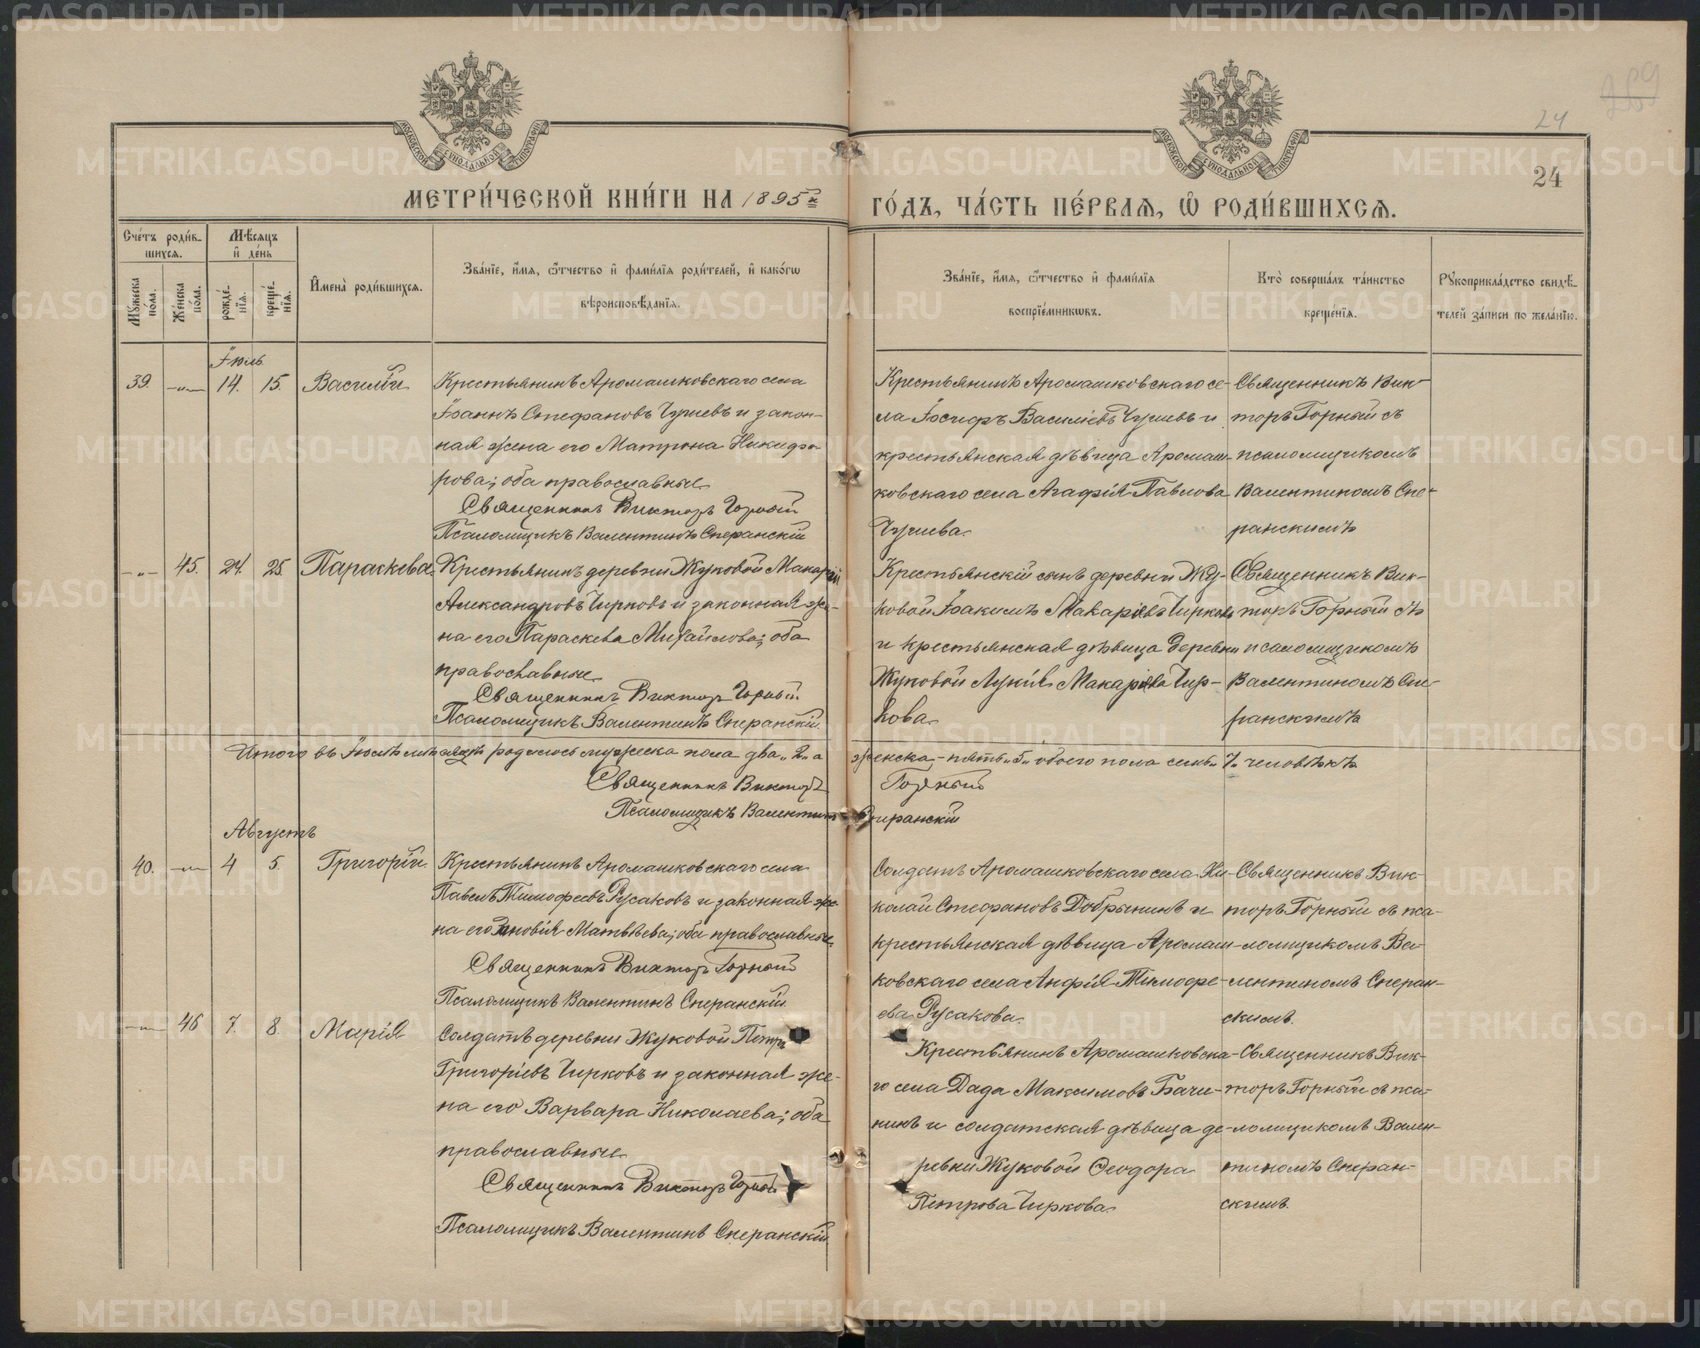 24
24
МЕТРИ́ЧЕСКОЙ КНИ́ГИ НА 1895й ГО́ДЪ, ЧА́СТЬ ПЕ́РВАЯ, Ѡ҆ РОДИ́ВШИХСЯ.
Сче́тъ роди́в-
шихся.
Му́жеска по́ла.
Же́нска по́ла.
Мѣ́сяцъ
и҆ де́нь
рожде́-
нїя.
креще́-
нїя.
И҆мена̀ роди́вшихся.
Зва́нїе, и҆́мя, ѻ҆́тчество и҆ фами́лїя роди́телей, и҆ како́гѡ
вѣроисповѣ́данїя.
Зва́нїе, и҆́мя, ѻ҆́тчество и҆ фами́лїя
воспрїе́мникѡвъ.
Кто̀ соверша́лъ та́инство
креще́нїя.
Рꙋкоприкла́дство свидѣ́-
телей за́писи по жела́нїю.
Іюль
39. —„— 14. 15. Василій
Крестьянинъ Аромашковскаго села
Іоаннъ Стефановъ Чушевъ и закон-
ная жена его Матрона Никифо-
рова; оба православные.
Священникъ Викторъ Горный
Псаломщикъ Валентинъ Сперанскій
Крестьянинъ Аромашковскаго се-
ла Іосифъ Василіевъ Чушевъ и
крестьянская дѣвица Аромаш-
ковскаго села Агафія Павлова
Чушева.
Священникъ Вик-
торъ Горный съ
псаломщикомъ
Валентиномъ Спе-
ранскимъ
—„— 45. 24. 25. Параскева.
Крестьянинъ деревни Жуковой Макарій
Александровъ Чирковъ и законная же-
на его Параскева Михайлова; оба
православные.
Священникъ Викторъ Горный
Псаломщикъ Валентинъ Сперанскій.
Крестьянскій сынъ деревни Жу-
ковой Іоакимъ Макаріевъ Чирковъ
и крестьянская дѣвица деревни
Жуковой Лукія Макаріева Чир-
кова.
Священникъ Вик-
торъ Горный съ
псаломщикомъ
Валентиномъ Спе-
ранскимъ
Итого въ Іюлѣ мѣсяцѣ родилось мужеска пола два „2„ а женска – пять „5„ обоего пола семь „7„ человѣкъ
Священникъ Викторъ Горный
Псаломщикъ Валентинъ Сперанскій
Августъ
40. —„— 4 5. Григорій
Крестьянинъ Аромашковскаго села
Павелъ Тимофеевъ Русаковъ и законная же-
на его Зиновія Матвѣева; оба православные.
Священникъ Викторъ Горный
Псаломщикъ Валентинъ Сперанскій.
Солдатъ Аромашковскаго села Ни-
колай Стефановъ Добрынинъ и
крестьянская дѣвица Аромаш-
ковскаго села Анфія Тимофе-
ева Русакова.
Священникъ Вик-
торъ Горный съ пса-
ломщикомъ Ва-
лентиномъ Сперан-
скимъ.
—„— 46 7. 8. Марія
Солдатъ деревни Жуковой Петръ
Григоріевъ Чирковъ и законная же-
на его Варвара Николаева; оба
православные.
Священникъ Викторъ Горный
Псаломщикъ Валентинъ Сперанскій.
Крестьянинъ Аромашковска-
го села Дада Максимовъ Бачи-
нинъ и солдатская дѣвица де-
ревни Жуковой Ѳеодора
Петрова Чиркова.
Священникъ Вик-
торъ Горный съ пса-
ломщикомъ Вален-
тиномъ Сперан-
скимъ.
METRIKI.GASO-URAL.RU